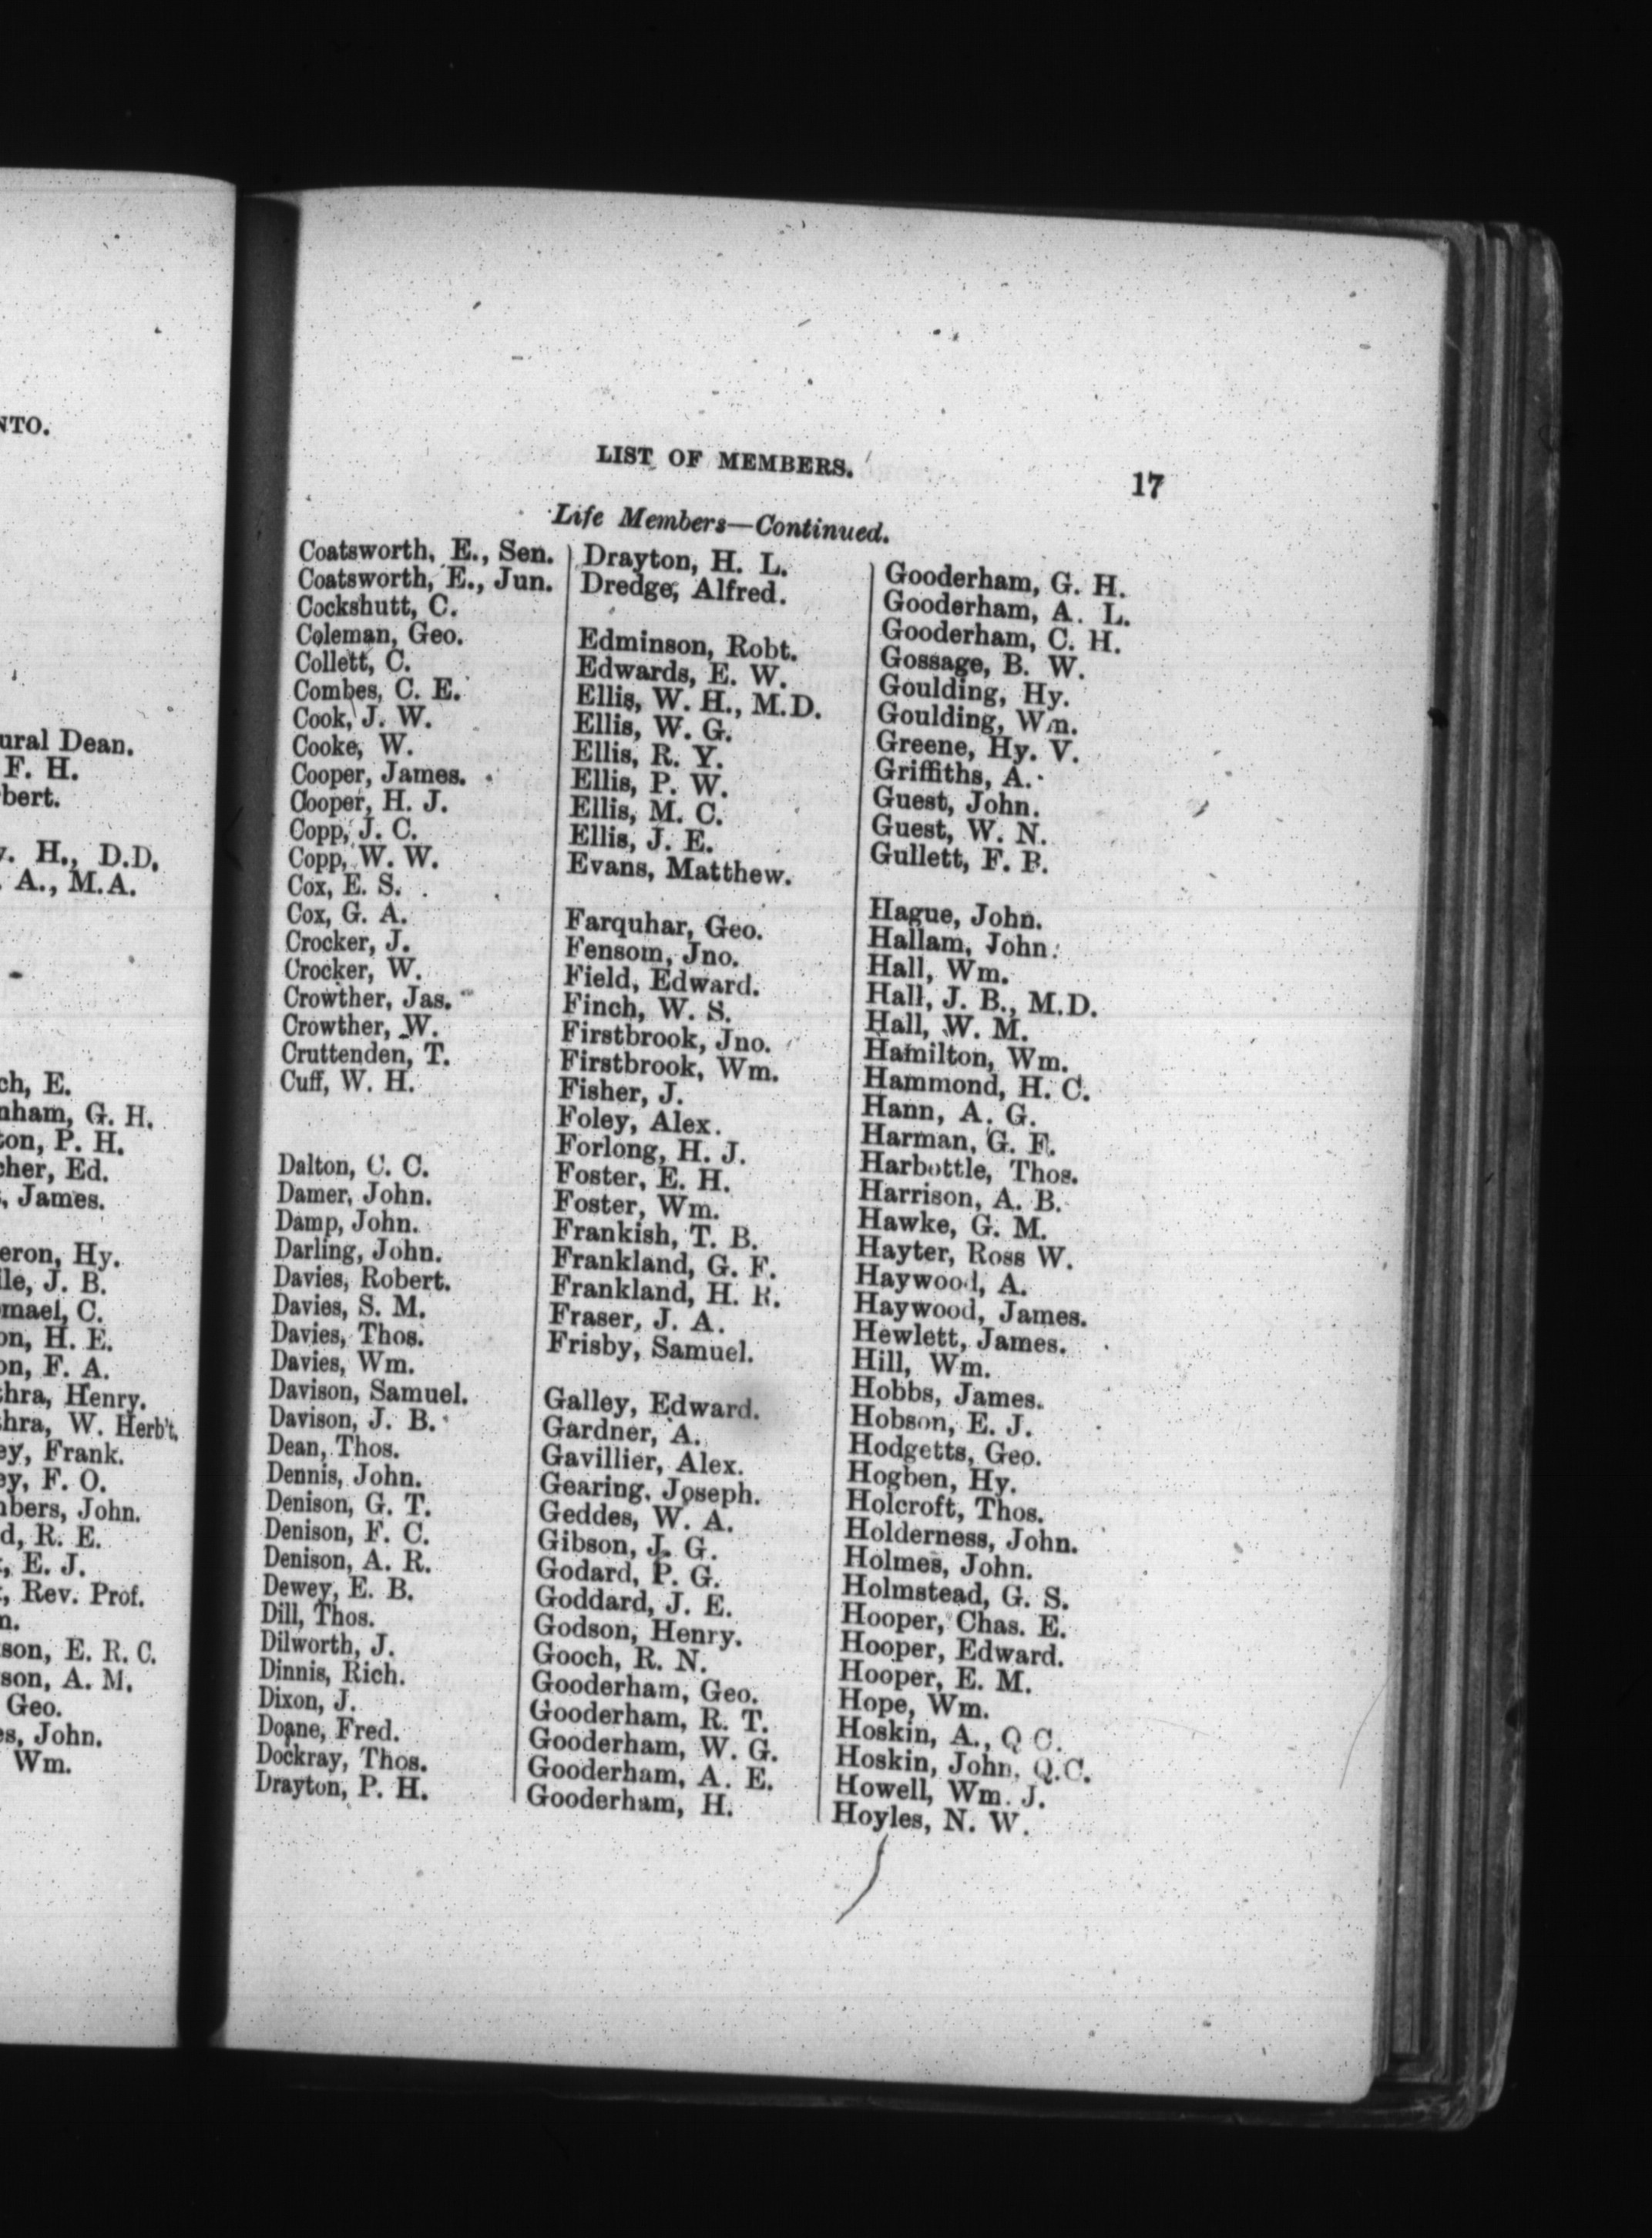 NTO.
ural Dean.
F. H.
bert.
H., D.D.
A., M.A.
ch, E.
nham, G. H.
ton, P. H.
cher, Ed.
James.
eron, Hy.
ile, J. B.
mael, C.
on, H. E.
on, F. A.
thra, Henry.
thra, W. Herb't.
ey, Frank.
ey, F. O.
mbers, John.
d, R. E.
, E. J.
, Rev. Prof.
n.
son, E. R. C.
son, A. M.
Geo.
es, John.
Wm.
LIST OF MEMBERS.
17
Life Members—Continued.
Coatsworth, E., Sen.
Coatsworth, E., Jun.
Cockshutt, C.
Coleman, Geo.
Collett, C.
Combes, C. E.
Cook, J. W.
Cooke, W.
Cooper, James.
Cooper, H. J.
Copp, J. C.
Copp, W. W.
Cox, E. S.
Cox, G. A.
Crocker, J.
Crocker, W.
Crowther, Jas.
Crowther, W.
Cruttenden, T.
Cuff, W. H.
Dalton, C. C.
Damer, John.
Damp, John.
Darling, John.
Davies, Robert.
Davies, S. M.
Davies, Thos.
Davies, Wm.
Davison, Samuel.
Davison, J. B.
Dean, Thos.
Dennis, John.
Denison, G. T.
Denison, F. C.
Denison, A. R.
Dewey, E. B.
Dill, Thos.
Dilworth, J.
Dinnis, Rich.
Dixon, J.
Doane, Fred.
Dockray, Thos.
Drayton, P. H.
Drayton, H. L.
Dredge, Alfred.
Edminson, Robt.
Edwards, E. W.
Ellis, W. H., M.D.
Ellis, W. G.
Ellis, R. Y.
Ellis, P. W.
Ellis, M. C.
Ellis, J. E.
Evans, Matthew.
Farquhar, Geo.
Fensom, Jno.
Field, Edward.
Finch, W. S.
Firstbrook, Jno.
Firstbrook, Wm.
Fisher, J.
Foley, Alex.
Forlong, H. J.
Foster, E. H.
Foster, Wm.
Frankish, T. B.
Frankland, G. F.
Frankland, H. R.
Fraser, J. A.
Frisby, Samuel.
Galley, Edward.
Gardner, A.
Gavillier, Alex.
Gearing, Joseph.
Geddes, W. A.
Gibson, J. G.
Godard, P. G.
Goddard, J. E.
Godson, Henry.
Gooch, R. N.
Gooderham, Geo.
Gooderham, R. T.
Gooderham, W. G.
Gooderham, A. E.
Gooderham, H.
Gooderham, G. H.
Gooderham, A. L.
Gooderham, C. H.
Gossage, B. W.
Goulding, Hy.
Goulding, Wm.
Greene, Hy. V.
Griffiths, A.
Guest, John.
Guest, W. N.
Gullett, F. B.
Hague, John.
Hallam, John.
Hall, Wm.
Hall, J. B., M.D.
Hall, W. M.
Hamilton, Wm.
Hammond, H. C.
Hann, A. G.
Harman, G. F.
Harbottle, Thos.
Harrison, A. B.
Hawke, G. M.
Hayter, Ross W.
Haywood, A.
Haywood, James.
Hewlett, James.
Hill, Wm.
Hobbs, James.
Hobson, E. J.
Hodgetts, Geo.
Hogben, Hy.
Holcroft, Thos.
Holderness, John.
Holmes, John.
Holmstead, G. S.
Hooper, Chas. E.
Hooper, Edward.
Hooper, E. M.
Hope, Wm.
Hoskin, A., Q C.
Hoskin, John, Q.C.
Howell, Wm. J.
Hoyles, N. W.